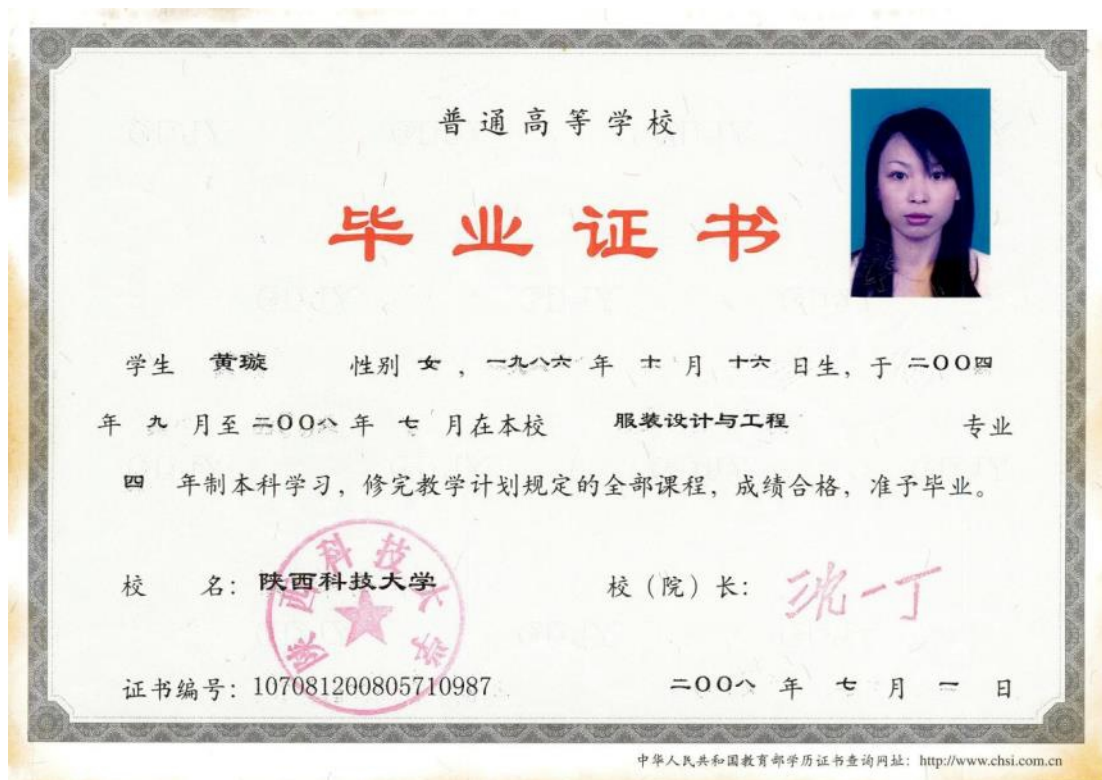 普通高等学校
毕业证书
学生 黄璇 性别 女，一九八六年 十 月 十六 日生，于 二〇〇四
年 九 月至 二〇〇八 年 七 月在本校 服装设计与工程 专业
四 年制本科学习，修完教学计划规定的全部课程，成绩合格，准予毕业。
校 名：陕西科技大学
校（院）长：沈一丁
陕西科技大学
证书编号：107081200805710987
二〇〇八 年 七 月 一 日
中华人民共和国教育部学历证书查询网址：http://www.chsi.com.cn